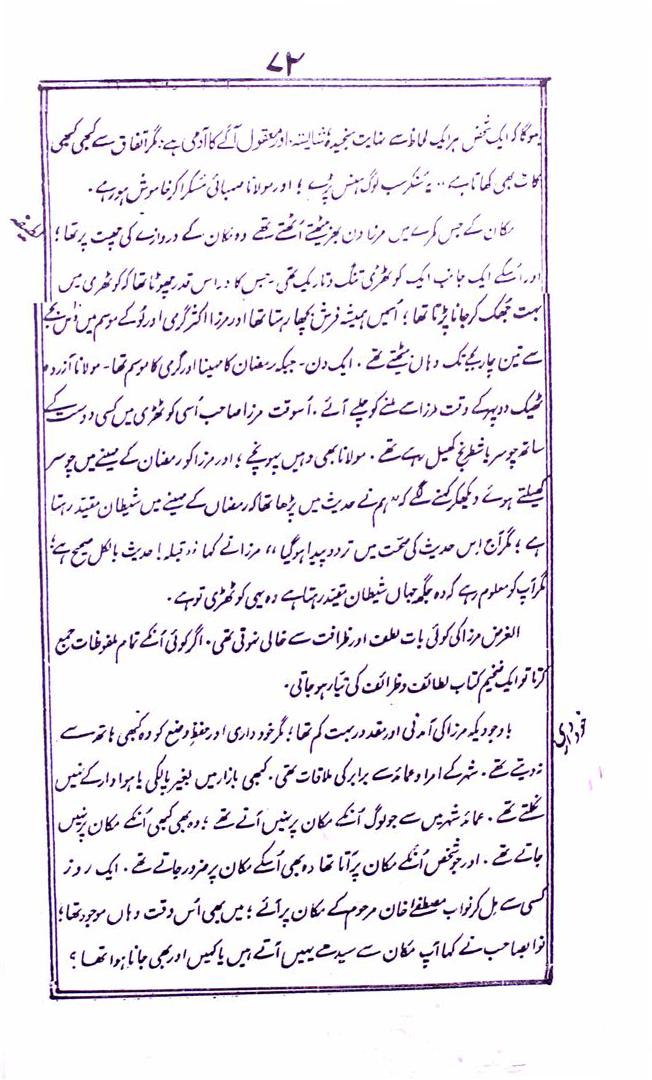 ۷۲
ہوگا کہ ایک شخص ہر ایک لحاظ سے نہایت سنجیدہ، شایستہ، اور معقول آگے کا آدمی ہے؛ مگر اتفاق سے کبھی کبھی
کاٹ بھی کھاتا ہے" یہ سنکر سب لوگ ہنس پڑے؛ اور مولانا صہبائی مسکرا کر خاموش ہو رہے۔
مکان کے جس کمرے میں مرزا دن بھر بیٹھتے اُٹھتے تھے وہ مکان کے دروازے کی چھت پر تھا؛
لطیفہ
اور اُسکے ایک جانب ایک کوٹھری تنگ و تاریک تھی۔ جس کا در اس قدر چھوٹا تھا کہ کوٹھری میں
بہت جھک کر جانا پڑتا تھا؛ اُسمیں ہمیشہ فرش بچھا رہتا تھا اور مرزا اکثر گرمی اور لُو کے موسم میں دس بجے
سے تین چار بجے تک وہاں بیٹھتے تھے۔ ایک دن۔ جبکہ رمضان کا مہینا اور گرمی کا موسم تھا۔ مولانا آزردہ
ٹھیک دوپہر کے وقت مرزا سے ملنے کو چلے آئے۔ اُسوقت مرزا صاحب اُسی کوٹھری میں کسی دوست کے
ساتھ چوسر یا شطرنج کھیل رہے تھے۔ مولانا بھی وہیں پہونچے؛ اور مرزا کو رمضان کے مہینے میں چوسر
کھیلتے ہوئے دیکھکر کہنے لگے کہ "ہم نے حدیث میں پڑھا تھا کہ رمضان کے مہینے میں شیطان مقید رہتا
ہے؛ مگر آج اِس حدیث کی صحت میں تردد پیدا ہوگیا" مرزا نے کہا "قبلہ! حدیث بالکل صحیح ہے؛
مگر آپ کو معلوم رہے کہ وہ جگہ جہاں شیطان مقید رہتا ہے وہ یہی کوٹھری تو ہے۔
الغرض مرزا کی کوئی بات لطف اور ظرافت سے خالی نہوتی تھی۔ اگر کوئی اُنکے تمام ملفوظات جمع
کرتا تو ایک ضخیم کتاب لطائف و ظرائف کی تیار ہوجاتی۔
باوجودیکہ مرزا کی آمدنی اور مقدور بہت کم تھا؛ مگر خودداری اور حفظِ وضع کو وہ کبھی ہاتھ سے
خودداری
ندیتے تھے۔ شہر کے امرا و عمائد سے برابر کی ملاقات تھی۔ کبھی بازار میں بغیر پالکی یا ہوادار کے نہیں
نکلتے تھے۔ عمائد شہر میں سے جو لوگ اُنکے مکان پر نہیں آتے تھے؛ وہ بھی کبھی اُنکے مکان پر نہیں
جاتے تھے۔ اور جو شخص اُنکے مکان پر آتا تھا وہ بھی اُسکے مکان پر ضرور جاتے تھے۔ ایک روز
کسی سے مل کر نواب مصطفےٰ خان مرحوم کے مکان پر آئے؛ میں بھی اُس وقت وہاں موجود تھا؛
نوابصاحب نے کہا آپ مکان سے سیدھے یہیں آتے ہیں یا کہیں اور بھی جانا ہوا تھا؟